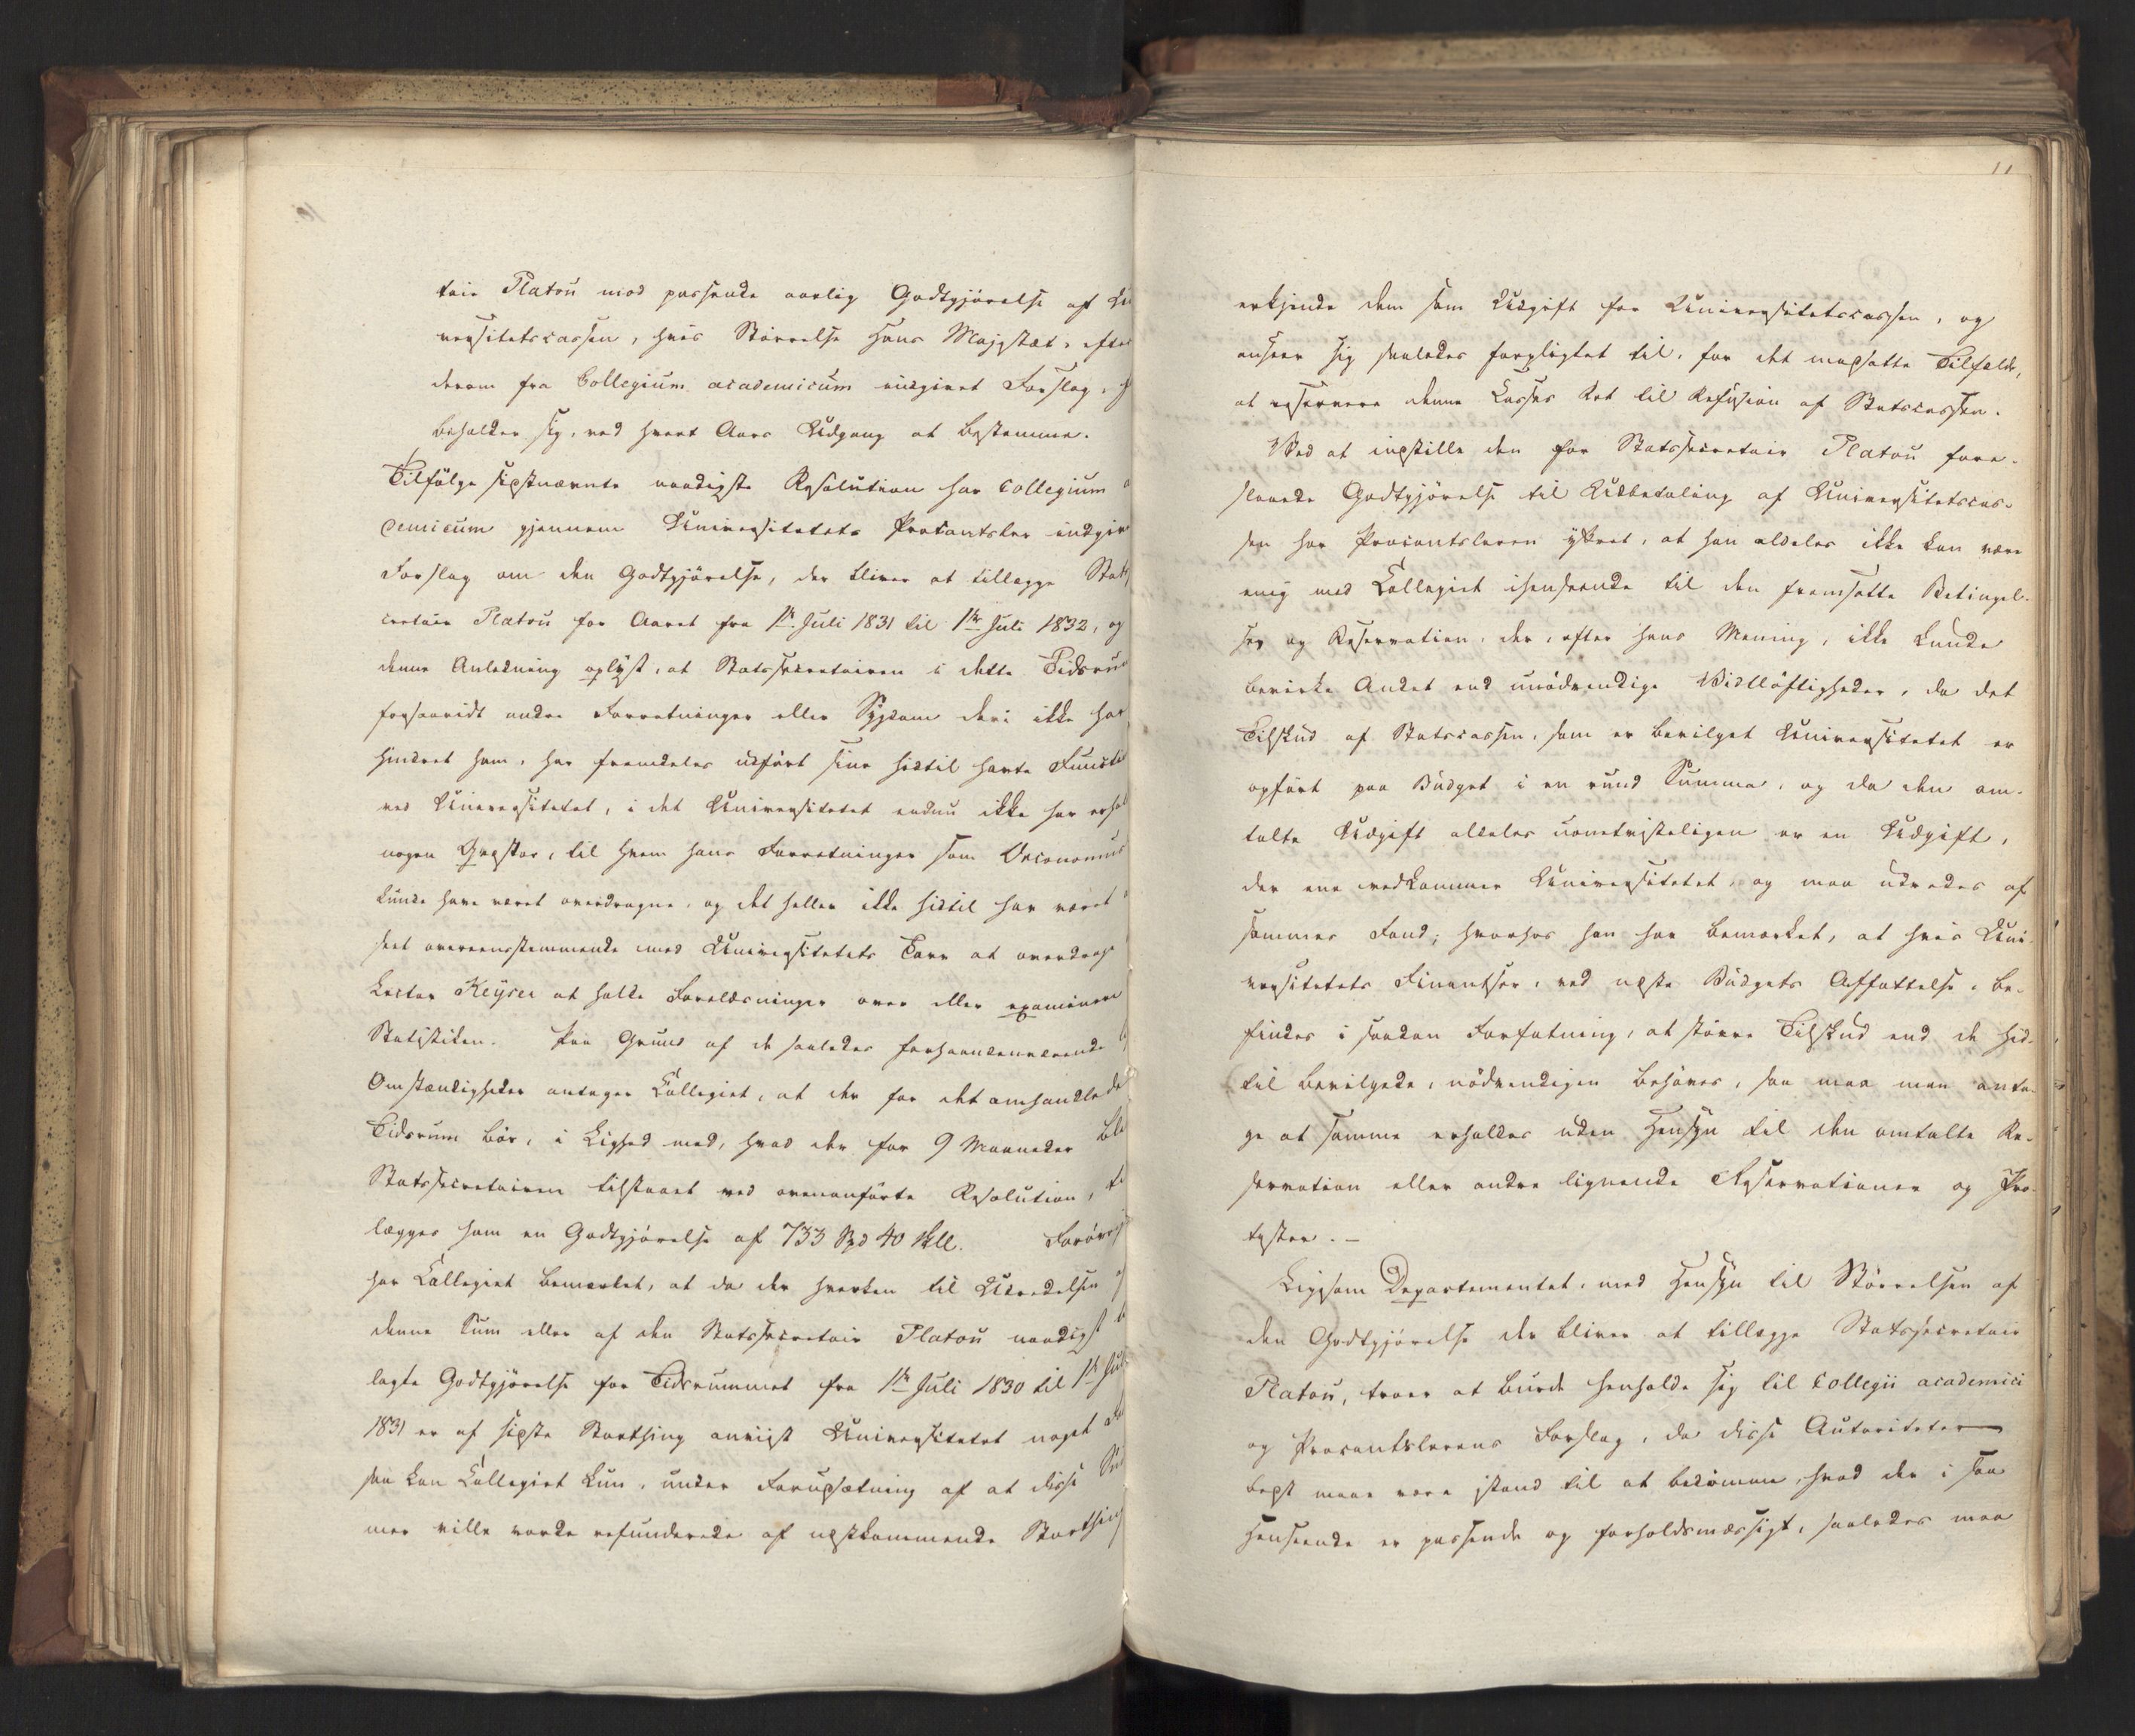 tair Platou mod passende aarlig Godtgjörelse af Uni
versitetscassen, hvis Störrelse Hans Majestæt, efter
derom fra Collegium academicum indgivet Forslag, for
beholder sig, ved hvert Aars Udgang at bestemme.
Tilfölge sidstnævnte naadigste Resolution har Collegium a
cemicum gjennem Universitetets Procantsler indgivet
Forslag om den Godtgjörelse, der bliver at tillægge Stats
cretair Platou for Aaret fra 1ste Juli 1831 til 1ste Juli 1832, og
denne Anledning oplyst, at Statssecretairen i dette Tidsrum
forsaavidt andre Forretninger eller Sygdom deri ikke har
hindret ham, har fremdeles udfört sine hidtil havte Functio
ved Universitetet, i det Universitetet endnu ikke har erhol
nogen Qvæstor, til hvem hans Forretninger som Oeconomus
kunde have været overdragne, og det heller ikke hidtil har været
seet overeensstemmende med Universitetets Tarv at overdrage
Lector Keyser at holde Forelæsninger over eller examinere
Statistiken. Paa Grund af de saaledes forhaandenværende
Omstændigheder antager Collegiet, at der for det omhandlede
Tidsrum bör, i Lighed med, hvad der for 9 Maaneder ble
Statssecretairen tilstaaet ved ovenanförte Resolution, til
lægges ham en Godtgjörelse af 733 Spd 40 skll. Forövrigt
har Collegiet bemærket, at da der hverken til Udredelsen af
denne Sum eller af den Statssecretair Platou naadigst til
lagte Godtgjörelse for Tidsrummet fra 1ste Juli 1830 til 1ste Juli
1831 er af sidste Storthing anviist Universitetet noget
saa kan Collegiet kun, under Forudsætning af at disse Sum
mer ville vorde refunderede af næstkommende Storthing
11
erkjende dem som Udgift for Universitetscassen, og
anseer sig saaledes forpligtet til, for det modsatte Tilfælde,
at reservere denne Casses Ret til Refusion af Statscassen.
Ved at indstille den for Statssecretair Platou fore-
slaaede Godtgjörelse til Udbetaling af Universitetscas-
sen har Procantsleren yttret, at han aldeles ikke kan være
enig med Collegiet ihenseende til den fremsatte Betingel-
se og Reservation, der, efter hans Mening, ikke kunde
bevirke Andet end unödvendige Vidtlöftigheder, da det
Tilskud af Statscassen, som er bevilget Universitetet er
opfört paa Budget i en rund Summa, og da den om-
talte Udgift aldeles uomtvisteligen er en Udgift,
der ene vedkommer Universitetet, og maa udredes af
sammes Fond; hvorhos han har bemærket, at hvis Uni-
versitetets Finantser, ved næste Budgets Affattelse, be-
findes i saadan Forfatning, at större Tilskud end de hid-
til bevilgede, nödvendigen behöves, saa maa man anta-
ge at samme erholdes uden Hensyn til den omtalte Re-
servation eller andre lignende Reservationer og Pro-
tester. —
Ligesom Departementet, med Hensyn til Störrelsen af
den Godtgjörelse der bliver at tillægge Statssecretair
Platou, troer at burde henholde sig til Collegii academici
og Procantslerens Forslag, da disse Autoriteter
bedst maae være istand til at bedömme, hvad der i saa
Henseende er passende og forholdsmæssigt, saaledes maa